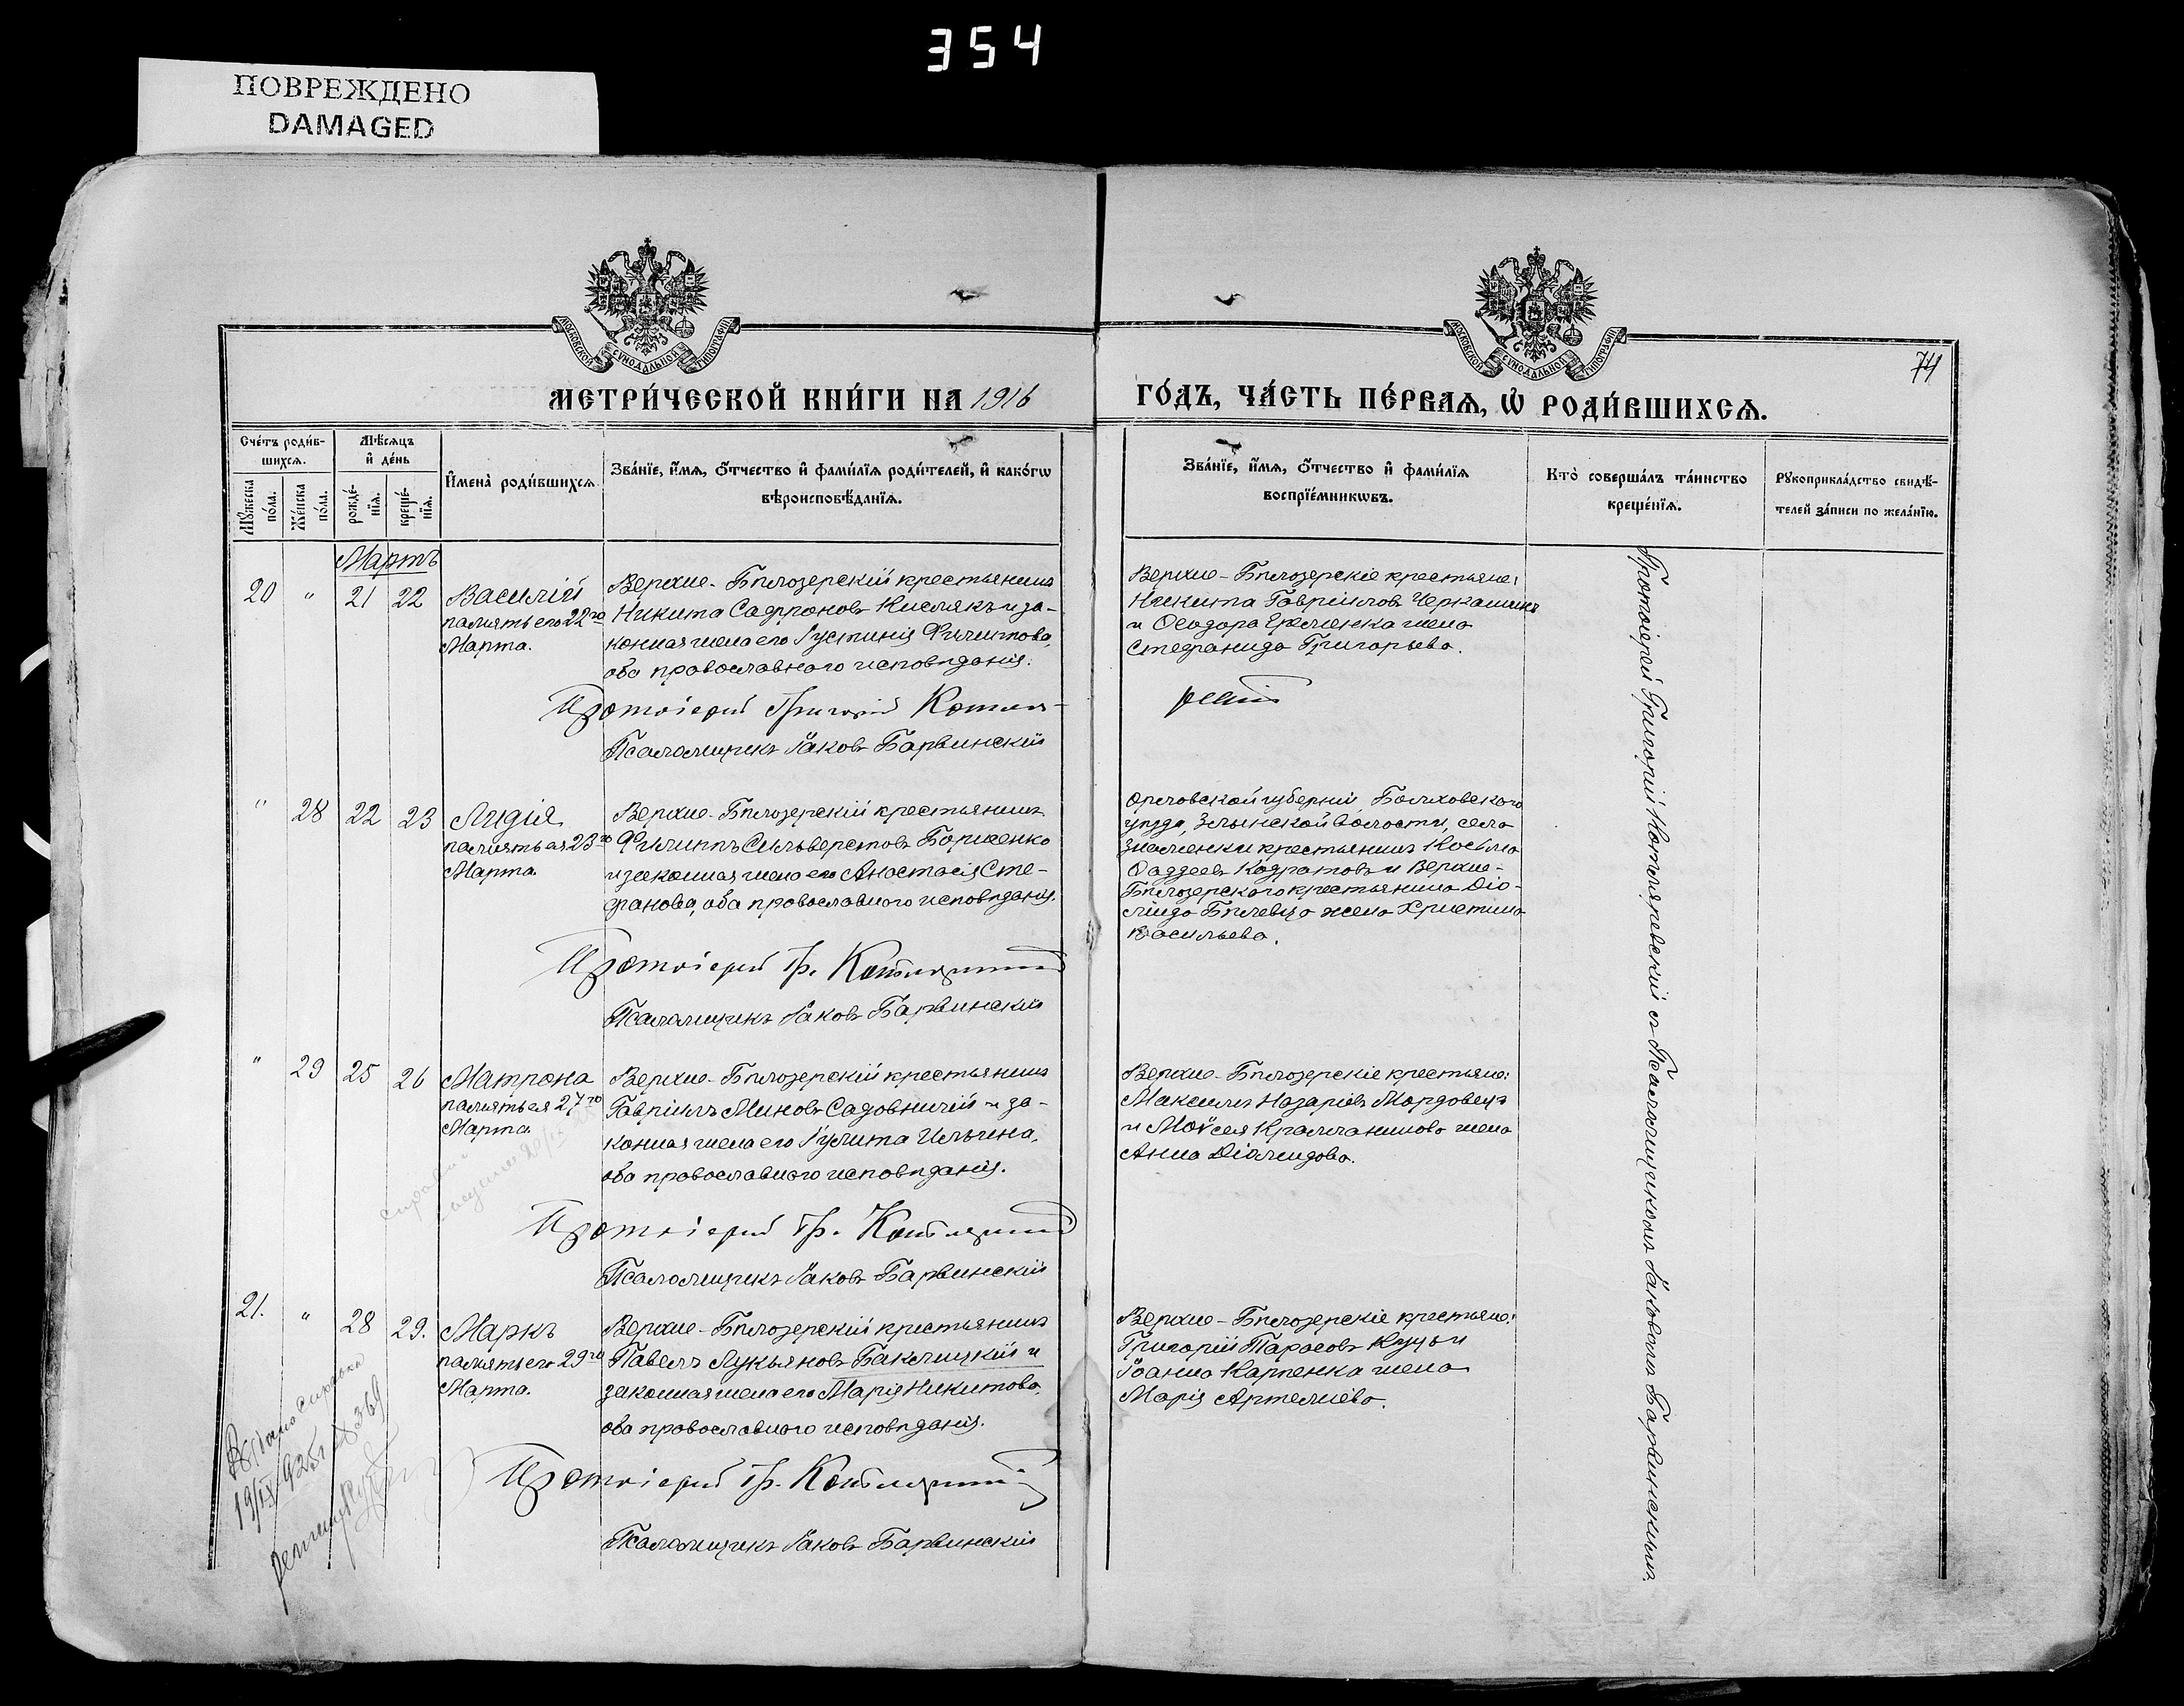 354
ПОВРЕЖДЕНО
DAMAGED
МОСКОВСКОЙ СѴНОДАЛЬНОЙ ТИПОГРАФІИ
МОСКОВСКОЙ СѴНОДАЛЬНОЙ ТИПОГРАФІИ
74
МЕТРИ́ЧЕСКОЙ КНИ́ГИ НА 1916 ГО́ДЪ, ЧА́СТЬ ПЕ́РВАѦ, Ѡ҆ РОДИ́ВШИХСѦ.
Сче́тъ роди́в-
шихсѧ.
Мꙋ́жеска по́ла.
Же́нска по́ла.
Мѣ́сѧцъ
и҆ де́нь
рожде́-
нїѧ.
креще́-
нїѧ.
И҆мена̀ роди́вшихсѧ
Зва́нїе, и҆́мѧ, ѻ҆́тчество и҆ фами́лїѧ роди́телей, и҆ како́гѡ
вѣроисповѣ́данїѧ.
Зва́нїе, и҆́мѧ, ѻ҆́тчество и҆ фами́лїѧ
воспрїе́мникѡвъ.
Кто̀ соверша́лъ та́инство
креще́нїѧ.
Рꙋкоприкла́дство свидѣ́-
телей за́писи по жела́нїю.
Мартъ
20 " 21 22
Василій
память его 22го
Марта.
Верхне-Бѣлозерскій крестьянинъ
Никита Сафроновъ Кислякъ и за-
конная жена его Іустинія Филиппова,
оба православнаго исповѣданія.
Протоіерей Григорій
Псаломщикъ Іаковъ Барвинскій
Верхне-Бѣлозерскіе крестьяне:
Никита Гавріиловъ Черкашинъ
и Ѳеодора жена
Стефанида Григорьева.
" 28 22 23
Лидія
память ея 23го
Марта.
Верхне-Бѣлозерскій крестьянинъ
Филиппъ Сильверстовъ Борисенко
и законная жена его Анастасія Сте-
фанова, оба православнаго исповѣданія.
Протоіерей Гр. Котляревскій
Псаломщикъ Іаковъ Барвинскій
Орловской губерніи Болховскаго
уѣзда, Злынской волости, села
Знаменки крестьянинъ Косьма
Ѳаддеевъ Кодратовъ и Верхне-
Бѣлозерскаго крестьянина Діо-
мида Бѣлевца жена Христина
Васильева.
" 29 25 26
Матрона
память ея 27го
Марта.
Верхне-Бѣлозерскій крестьянинъ
Гавріилъ Миновъ Садовничій и за-
конная жена его Іулита Ильина,
оба православнаго исповѣданія.
Протоіерей Гр. Котляревскій
Псаломщикъ Іаковъ Барвинскій
Верхне-Бѣлозерскіе крестьяне:
Максимъ Назаріевъ Мордовецъ
и Моѵсея Крамланинова жена
Анна Діомидова.
21. " 28 29.
Маркъ
память его 29го
Марта.
Верхне-Бѣлозерскій крестьянинъ
Павелъ Лукьяновъ Баклицкій и
законная жена его Марія Никитова,
оба православнаго исповѣданія.
Протоіерей Гр. Котляревскій
Псаломщикъ Іаковъ Барвинскій
Верхне-Бѣлозерскіе крестьяне:
Григорій Тарасовъ Куцъ и
Іоанна Карпенка жена
Марія Артеміева.
Протоіерей Григорій Котляревскій съ Псаломщикомъ Іаковомъ Барвинскимъ.
справка
19/IX 925 г. № 369